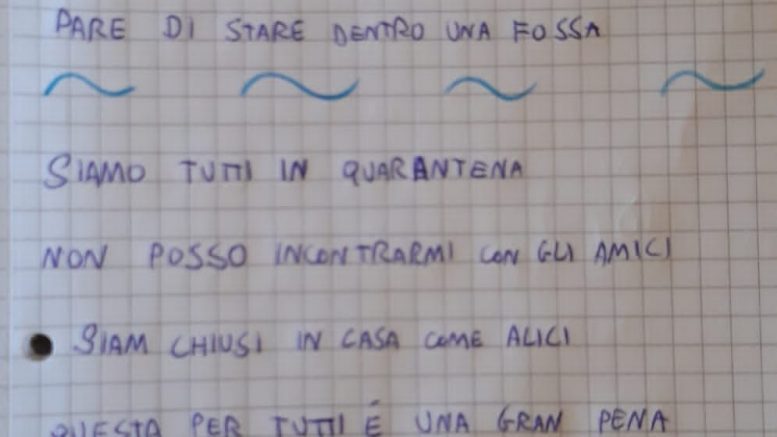 PARE DI STARE DENTRO UNA FOSSA
SIAMO TUTTI IN QUARANTENA
NON POSSO INCONTRARMI CON GLI AMICI
SIAM CHIUSI IN CASA COME ALICI
QUESTA PER TUTTI É UNA GRAN PENA